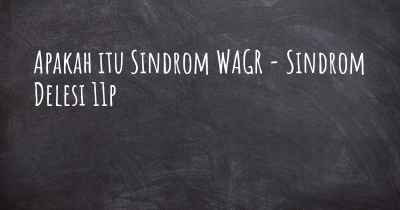 Apakah itu Sindrom WAGR - Sindrom
Delesi 11p